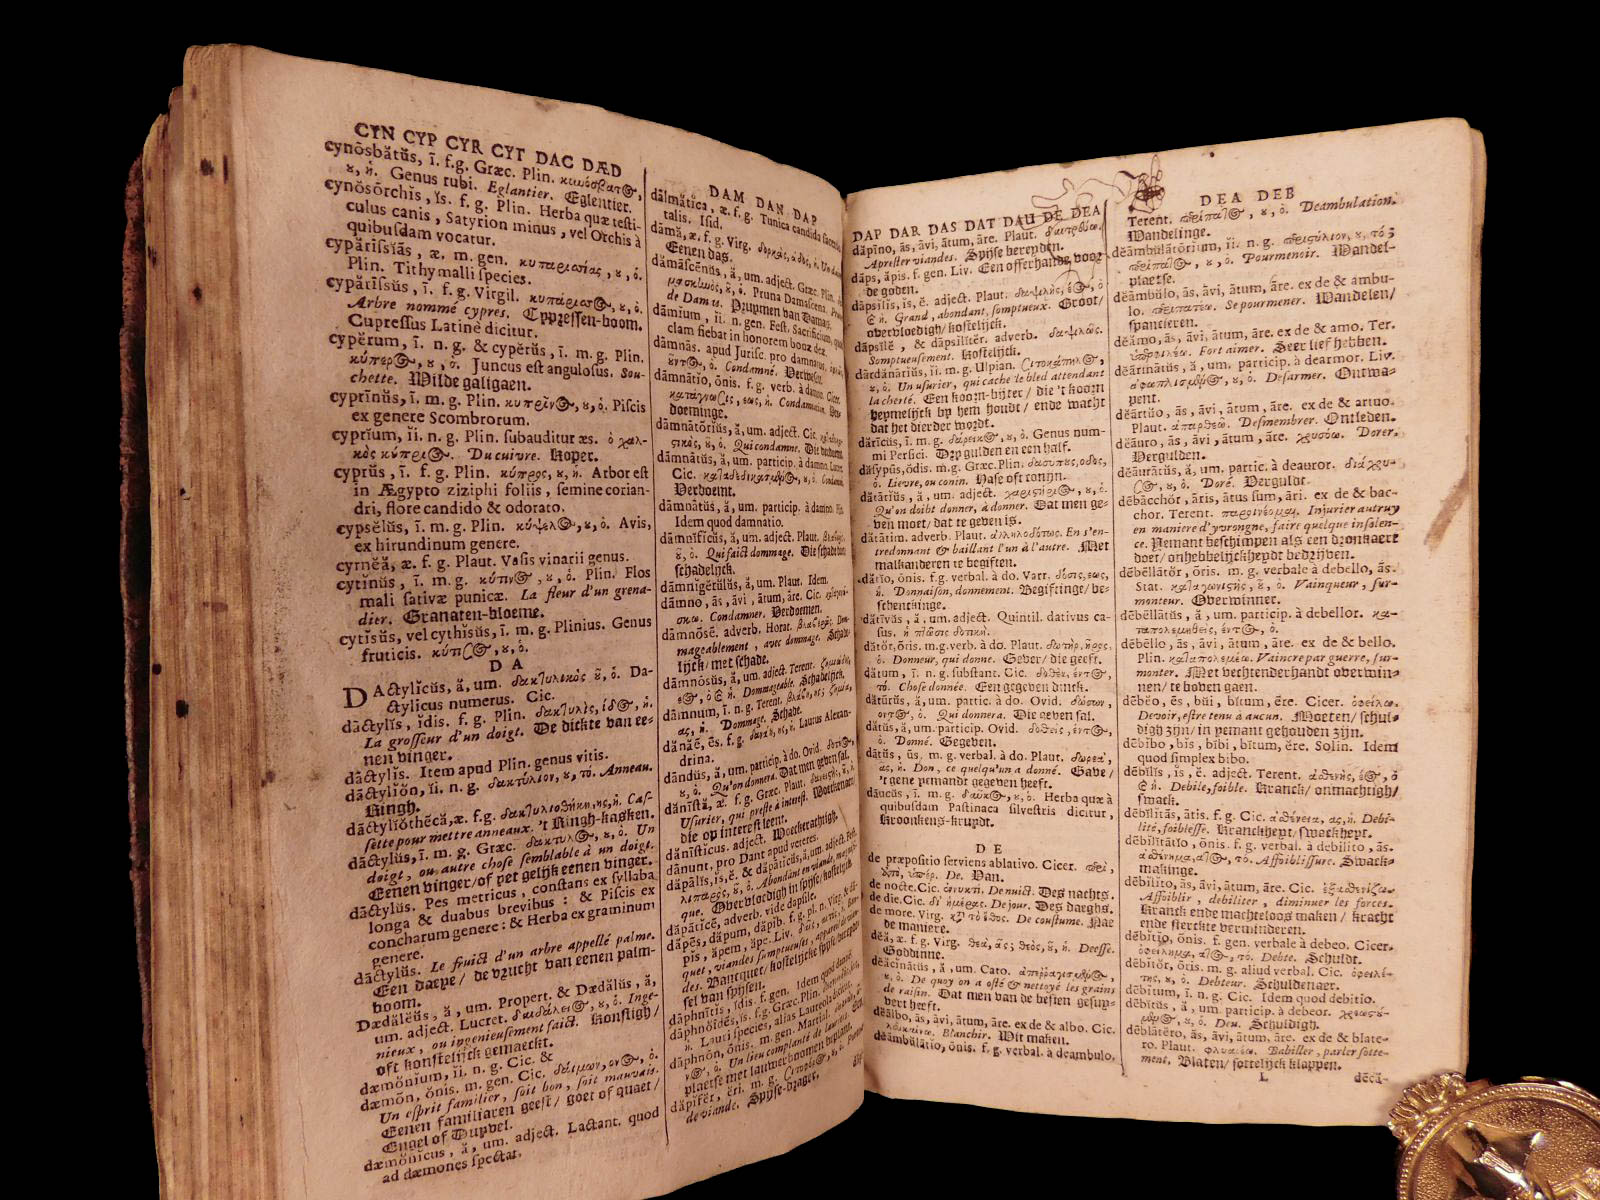 CYN CYP CYR CYT DAC DÆD
cynŏsbătŭs, ī. f.g. Græc. Plin. κυνόσβατος,
ȣ, ἡ. Genus rubi. Eglantier. Eglentier.
cynŏsŏrchĭs, ĭs. f. g. Plin. Herba quæ testi-
culus canis, Satyrion minus, vel Orchis à
quibusdam vocatur.
cypărĭssĭās, æ. m. gen. κυπαρισσίας, ȣ, ὁ.
Plin. Tithymalli species.
cypărĭssŭs, ī. f. g. Virgil. κυπάρισσος, ȣ, ὁ.
Arbre nommé cypres. Cypressen-boom.
Cupressus Latinè dicitur.
cypērum, ī. n. g. & cypērŭs, ī. m. g. Plin.
κύπερος, ȣ, ὁ. Juncus est angulosus. Sou-
chette. Wilde galigaen.
cyprīnŭs, ī. m. g. Plin. κυπρῖνος, ȣ, ὁ. Piscis
ex genere Scombrorum.
cyprĭum, ĭi. n. g. Plin. subauditur æs. ὁ χαλ-
κὸς κύπριος. Du cuivre. Koper.
cyprŭs, ī. f. g. Plin. κύπρος, ȣ, ἡ. Arbor est
in Ægypto ziziphi foliis, semine corian-
dri, flore candido & odorato.
cypsĕlŭs, ī. m. g. Plin. κύψελος, ȣ, ὁ. Avis,
ex hirundinum genere.
cyrnĕă, æ. f. g. Plaut. Vasis vinarii genus.
cytĭnŭs, ī. m. g. κύτινος, ȣ, ὁ. Plin. Flos
mali sativæ punicæ. La fleur d'un grena-
dier. Granaten-bloeme.
cytĭsŭs, vel cythĭsŭs, ī. m. g. Plinius. Genus
fruticis. κύτισος, ȣ, ὁ.
D A
DActylĭcŭs, ă, um. δακτυλικὸς ȣ, ὁ. Da-
ctylicus numerus. Cic.
dăctylĭs, ĭdis. f. g. Plin. δακτυλὶς, ίδος, ἡ.
La grosseur d'un doigt. De dickte van ee-
nen vinger.
dăctylĭs. Item apud Plin. genus vitis.
dăctylĭŏn, ĭi. n. g. δακτύλιον, ȣ, τό. Anneau.
Ringh.
dăctylĭŏthēcă, æ. f. g. δακτυλιοθήκη, ης, ἡ. Cas-
sette pour mettre anneaux. 't Ringh-kasken.
dăctylŭs, ī. m. g. Græc. δάκτυλος, ȣ, ὁ. Un
doigt, ou autre chose semblable à un doigt.
Eenen vinger/ of yet gelijk eenen vinger.
dăctylŭs. Pes metricus, constans ex syllaba
longa & duabus brevibus: & Piscis ex
concharum genere: & Herba ex graminum
genere.
dăctylŭs. Le fruict d'un arbre appellé palme.
Een daeye/ de vrucht van eenen palm-
boom.
Dædălĕŭs, ă, um. Propert. & Dædălŭs, ă,
um. adject. Lucret. δαιδάλεος, ȣ, ὁ. Inge-
nieux, ou ingenieusement faict. Konstigh/
oft konstelijck gemaeckt.
dæmŏnĭum, ĭi. n. g. Cic. &
dæmōn, ŏnis. m. gen. Cic. δαίμων, ονος, ὁ.
Un esprit familier, soit bon, soit mauvais.
Eenen familiaren geest/ goet of quaet/
Engel of Duyvel.
dæmŏnĭcus, ă, um. adject. Lactant. quod
ad dæmones spectat.
DAM DAN DAP
dălmătĭca, æ. f. g. Tunica candida
talis. Isid.
dāmă, æ. f. g. Virg.
Eenen das.
dămăscēnŭs, ă, um. adject. Græc. Plin.
Pruna Damascena.
de Damas. Pruymen van Damas.
dāmĭum, ĭi. n. gen. Fest. Sacrificium, quod
clam fiebat in honorem bonæ deæ.
dāmnās. apud Jurisc. pro damnatus.
Condamné. Verwesen.
dāmnātĭo, ōnis. f. g. verb. à damno. Cicer.
Condamnation. Ver-
doeminge.
dāmnātōrĭus, ă, um. adject. Cic.
Qui condamne. Die verdoemt.
dāmnātŭs, ă, um. particip. à damno. Lucret.
Cic. Condamné.
Verdoemt.
dāmnātŭs, ă, um. particip. à damno.
Idem quod damnatio.
dāmnĭfĭcŭs, ă, um. adject. Plaut.
Qui faict dommage. Die schade doet/
schadelijck.
dāmnĭgĕrŭlŭs, ă, um. Plaut. Idem.
dāmno, ās, āvi, ātum, āre. Cic.
Condamner. Verdoemen.
dāmnōsē. adverb. Horat. Dom-
mageablement, avec dommage. Schade-
lijck/ met schade.
dāmnōsŭs, ă, um. adject. Terent.
Dommageable. Schadelijck.
dāmnum, ī. n. g. Terent.
Dommage. Schade.
dănăē, ēs. f. g. Laurus Alexan-
drina.
dăndŭs, ă, um. particip. à do. Ovid.
Qu'on donnera. Dat men geven sal.
dănīstă, æ. f. g. Græc. Plaut.
Usurier, qui preste à interest. Woeckenaer/
die op interest leent.
dănīstĭcus. adject. Woeckerachtigh.
dănunt, pro Dant apud veteres.
dăpālĭs, ĭs, ĕ. & dăpātĭcŭs, ă, um. adject. Fest.
Abondant en viande, magnifi-
que. Overvloedigh in spijse/ kostelijck.
dăpātĭcē, adverb. vide dapsile.
dăpēs, dăpum, dăpĭb. f. g. pl. n. Virg. & dā-
pĭs, ăpem, ăpe. Liv.
quet, viandes somptueuses,
des. Bancquet/ kostelijcke spijse/
sel van spijsen.
dăphnītĭs, ĭdis. f. gen. Idem quod
dăphnŏīdēs, ĭs. f. g. Græc. Plin.
Lauri species, alias Laureola
dăphnōn, ōnis. m. gen. Martial.
Un lieu complanté de lauriers.
plaetse met lauwerboomen beplant.
dăpĭfĕr, ĕri. m. g.
de viande. Spijse-drager.
DAP DAR DAS DAT DAU DE DEA
dăpīno, ās, āvi, ātum, āre. Plaut.
Aprester viandes. Spijse bereyden.
dāps, ăpis. f. gen. Liv. Een offerhande, voor
de goden.
dāpsĭlĭs, ĭs, ĕ. adject. Plaut. δαψιλὴς, έος, ὁ
καὶ ἡ. Grand, abondant, somptueux. Groot/
overvloedigh/ kostelijck.
dāpsĭlē, & dāpsĭlĭtĕr. adverb. δαψιλῶς.
Somptueusement. Kostelijck.
dārdānārĭus, ĭi. m. g. Ulpian. σιτοκάπηλος,
ȣ, ὁ. Un usurier, qui cache le bled attendant
la cherté. Een koorn-bijter/ die 't koorn
heymelijck by hem houdt/ ende wacht
dat het dierder wordt.
dārīcus, ī. m. g. δάρεικος, ȣ, ὁ. Genus num-
mi Persici. Dry gulden en een half.
dăsypŭs, ŏdis. m. g. Græc. Plin. δασύπους, οδος,
ὁ. Lievre, ou conin. Hase oft conijn.
dătārĭŭs, ă, um. adject. χαριστήριος, ȣ, ὁ.
Qu'on doibt donner, à donner. Dat men ge-
ven moet/ dat te geven is.
dătātim. adverb. Plaut. ἀλληλοδότως. En s'en-
tredonnant & baillant l'un à l'autre. Met
malkanderen te begiften.
dătĭo, ōnis. f.g. verbal. à do. Varr. δόσις, εως,
ἡ. Donnaison, donnement. Begiftinge/ be-
schenckinge.
dătīvŭs, ă, um. adject. Quintil. dativus ca-
sus. ἡ πτῶσις δοτική.
dătŏr, ōris. m. g. verb. à do. Plaut. δωτὴρ, ῆρος,
ὁ. Donneur, qui donne. Gever/ die geeft.
dătum, ī. n. g. substant. Cic. δοθὲν, έντος,
τό. Chose donnée. Een gegeven dinck.
dătūrŭs, ă, um. partic. à do. Ovid. δώσων,
οντος, ὁ. Qui donnera. Die geven sal.
dătŭs, ă, um. particip. Ovid. δοθεὶς, έντος,
ὁ. Donné. Gegeven.
dătŭs, ūs. m. g. verbal. à do. Plaut. δωρεὰ,
ᾶς, ἡ. Don, ce quelqu'un a donné. Gave/
't gene yemandt gegeven heeft.
dăucŭs, ī. m. g. δαῦκος, ȣ, ὁ. Herba quæ à
quibusdam Pastinaca silvestris dicitur,
Kroonkens-kruydt.
D E
de præpositio serviens ablativo. Cicer. περὶ,
ἀπὸ, ὑπέρ. De. Van.
de nocte. Cic. ἐννυχί. De nuict. Des nachts.
de die. Cic. δι' ἡμέρας. De jour. Des daeghs.
de more. Virg. κατὰ τὸ ἔθος. De coustume. Nae
de maniere.
dĕă, æ. f. g. Virg. θεὰ, ᾶς; θεὸς, ȣ, ἡ. Deesse.
Goddinne.
dĕăcĭnātŭs, ă, um. Cato.
ȣ, ὁ. De quoy on a osté & nettoyé les grains
de raisin. Dat men van de besien gesuy-
vert heeft.
dĕālbo, ās, āvi, ātum, āre. ex de & albo. Cic.
Blanchir. Wit maken.
dĕāmbŭlātĭo, ōnis. f. g. verbal. à deambulo,
DEA DEB
Terent. περίπατος, ȣ, ὁ. Deambulation.
Wandelinge.
dĕāmbŭlātōrĭum, ĭi. n. g. περιπόλιον, ȣ, τό;
περίπατος, ȣ, ὁ. Pourmenoir. Wandel-
plaetse.
dĕāmbŭlo, ās, āvi, ātum, āre. ex de & ambu-
lo. περιπατέω. Se pourmener. Wandelen/
spancieren.
dĕămo, ās, āvi, ātum, āre. ex de & amo. Ter.
ὑπερφιλέω. Fort aimer. Seer lief hebben.
dĕărmātŭs, ă, um, particip. à dearmor. Liv.
ἀφωπλισμένος, ȣ, ὁ. Desarmer. Ontwa-
pent.
dĕărtŭo, ās, āvi, ātum, āre. ex de & artuo.
Plaut. ἀπαρθέω. Desmembrer. Ontleden.
dĕăuro, ās, āvi, ātum, āre. χρυσόω. Dorer.
Vergulden.
dĕăurātŭs, ă, um. partic. à deauror. διάχρυ-
σος, ȣ, ὁ. Doré. Verguldt.
dēbācchŏr, āris, ātus sum, āri. ex de & bac-
chor. Terent. παροινέομαι. Injurier autruy
en maniere d'yvrongne, faire quelque insolen-
ce. Yemant beschimpen als een dronkaert
doet/ onhebbelijckheydt bedrijven.
dēbēllātŏr, ōris. m. g. verbale à debello, ās.
Stat. καταγωνιστὴς, ȣ, ὁ. Vainqueur, sur-
monteur. Overwinner.
dēbēllātŭs, ă, um, particip. à debellor. κα-
ταπολεμηθεὶς, έντος, ὁ.
dēbēllo, ās, āvi, ātum, āre. ex de & bello.
Plin. καταπολεμέω. Vaincre par guerre, sur-
monter. Met vechtenderhandt overwin-
nen/ te boven gaen.
dēbĕo, ēs, bŭi, bĭtum, ēre. Cicer. ὀφείλω.
Devoir, estre tenu à aucun. Moeten/ schul-
digh zijn/ in yemant gehouden zijn.
dēbĭbo, bĭs, bĭbi, bĭtum, ĕre. Solin. Idem
quod simplex bibo.
dēbĭlĭs, ĭs, ĕ. adject. Terent. ἀσθενὴς, έος, ὁ
καὶ ἡ. Debile, foible. Kranck/ onmachtigh/
swack.
dēbĭlĭtās, ātis. f. g. Cic. ἀσθένεια, ας, ἡ. Debi-
lité, foiblesse. Kranckheyt/ swackheyt.
dēbĭlĭtātĭo, ōnis. f. g. verbal. à debilito, ās.
ἀσθένημα, ατος, τό. Affoiblissure. Swack-
makinge.
dēbĭlĭto, ās, āvi, ātum, āre. Cic. ἐξασθενίζω.
Affoiblir, debiliter, diminuer les forces.
Kranck ende machteloos maken/ kracht
ende sterckte verminderen.
dēbĭtĭo, ōnis. f. gen. verbale à debeo. Cicer.
ὀφείλημα, ατος, τό. Debte. Schuldt.
dēbĭtŏr, ōris. m. g. aliud verbal. Cic. ὀφειλέ-
της, ȣ, ὁ. Debteur. Schuldenaer.
dēbĭtum, ī. n. g. Cic. Idem quod debitio.
dēbĭtŭs, ă, um. particip. à debeor.
ȣ, ὁ. Deu. Schuldigh.
dēblătĕro, ās, āvi, ātum, āre. ex de & blate-
ro. Plaut. φλυαρέω. Babiller, parler sotte-
ment. Blaten/ sottelijck klappen.
L
dĕcă-